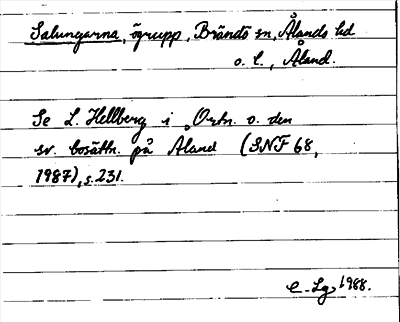 Salungarna, ögrupp, Brändö sn, Ålands hd
o. l., Åland.
Se L. Hellberg i Ortn. o. den
sv. bosättn. på Åland (SNF 68,
1987), s. 231.
C. Lg, 1988.